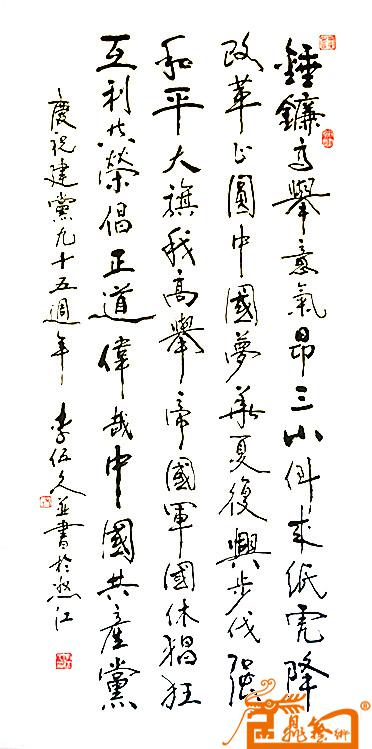 錘鐮高舉意氣昂三小來紙虎降
改革圓中國夢華夏復興步伐強
和平大旗我高舉帝國軍國休猖狂
互利共榮倡正道偉哉中國共產黨
慶祝建黨九十五週年李伍久並書於怒江
鼎藝術